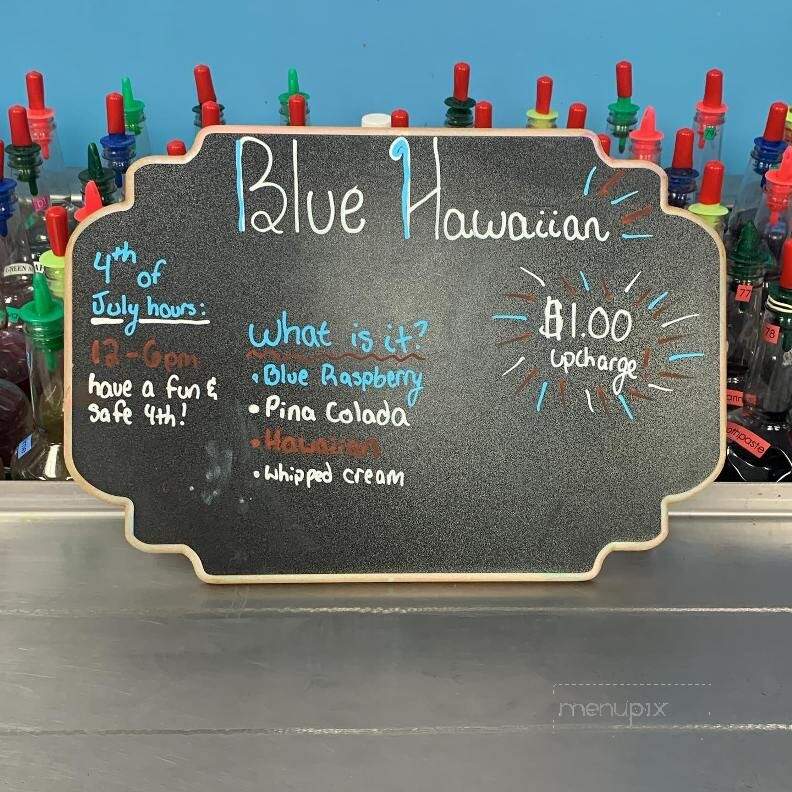 Blue Hawaiian
4th of
July hours:
12-6pm
have a fun &
safe 4th!
What is it?
• Blue Raspberry
• Pina Colada
• Hawaiian
• Whipped cream
$1.00
upcharge!
77
78
menupix